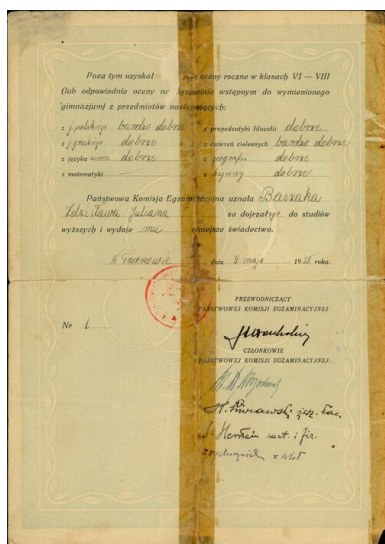 Poza tym uzyskał oceny roczne w klasach VI — VIII
(lub odpowiednie oceny na egzaminie wstępnym do wymienionego
gimnazjum) z przedmiotów następujących:
z j. polskiego bardzo dobrze z propedeutyki filozofii dobrze
z j. greckiego dobrze z ćwiczeń cielesnych bardzo dobrze
z języka niem. dobrze z geografii dobrze
z matematyki — z higieny dobrze
Państwowa Komisja Egzaminacyjna uznała Baszaka
Zdzisława Juliana za dojrzałego do studiów
wyższych i wydaje mu niniejsze świadectwo.
W Tarnowie dnia 9 maja 1938 roku.
PRZEWODNICZĄCY
PAŃSTWOWEJ KOMISJI EGZAMINACYJNEJ
Nr 1
CZŁONKOWIE
PAŃSTWOWEJ KOMISJI EGZAMINACYJNEJ:
jęz. łac.
mat. i fiz.